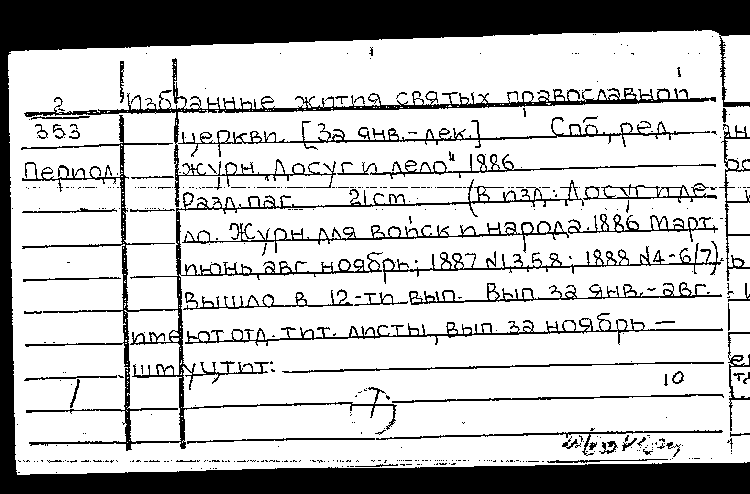 1
2
353
Период.
Избранные жития святых православной
церкви. [За янв.-дек.] Спб., ред.
журн. „Досуг и дело", 1886
Разд. паг. 21 cm (В изд.: Досуг и де-
ло. Журн. для войск и народа. 1886 Март,
июнь, авг., ноябрь; 1887 №1,3,5,8; 1888 №4-6(7).
Вышло в 12-ти вып. Вып. за янв.-авг.
имеют отд. тит. листы, вып. за ноябрь —
шмуцтит:
10
1
1